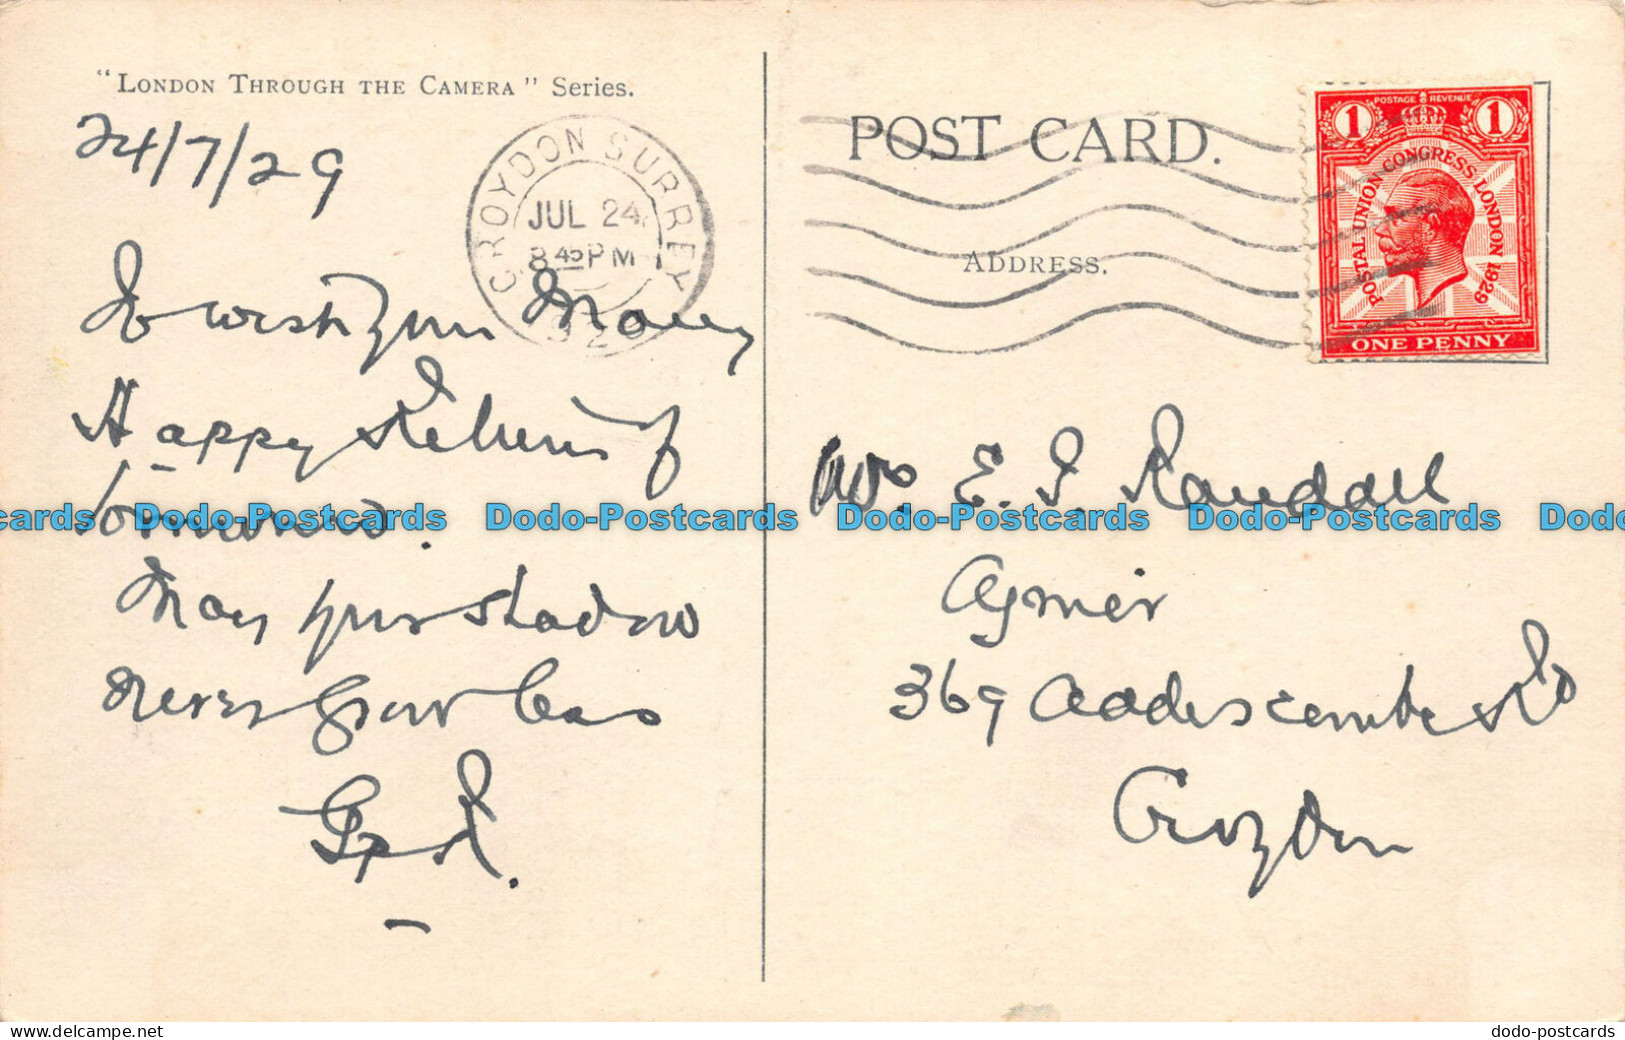 "LONDON THROUGH THE CAMERA" Series.
24/7/29
CROYDON SURREY
JUL 24
8 45 PM
To wish you Many
Happy Returns of
tomorrow.
May your shadow
never grow less
POST CARD.
ADDRESS.
1 POSTAGE REVENUE 1
POSTAL UNION CONGRESS LONDON 1929
ONE PENNY
Mrs E. J. Randall
Aymer
369 Addiscombe Rd
Croydon
Dodo-Postcards Dodo-Postcards Dodo-Postcards Dodo-Postcards
delcampe.net
dodo-postcards